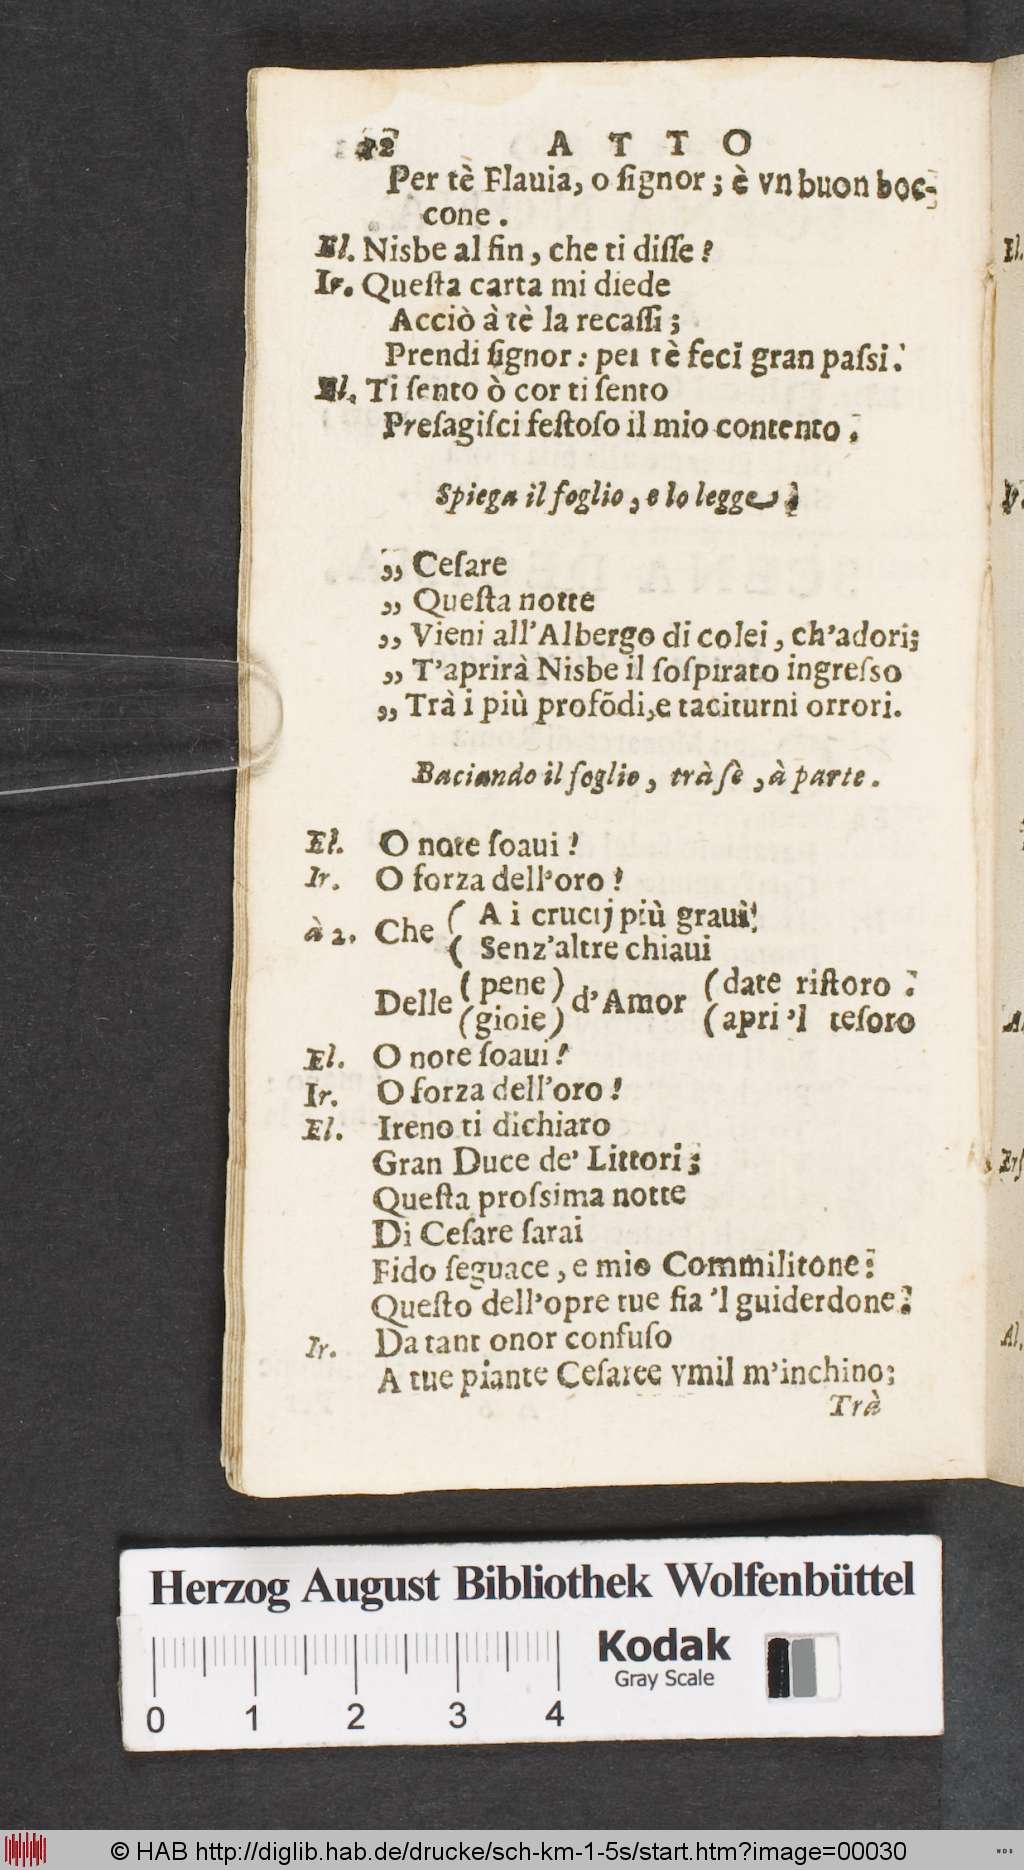 12 ATTO
Per tè Flauia, o ſignor; è vn buon boc-
cone.
El. Nisbe al fin, che ti diſſe?
Ir. Queſta carta mi diede
Acciò à tè la recaſſi;
Prendi ſignor: per tè feci gran paſsi.
El. Ti ſento ò cor ti ſento
Preſagiſci feſtoſo il mio contento.
Spiega il foglio, e lo legge.
„ Ceſare
„ Queſta notte
„ Vieni all'Albergo di colei, ch'adori;
„ T'aprirà Nisbe il ſoſpirato ingreſso
„ Trà i più profōdi, e taciturni orrori.
Baciando il foglio, trà ſè, à parte.
El. O note ſoaui!
Ir. O forza dell'oro!
à 2. Che ( A i crucij più graui!
( Senz'altre chiaui
Delle (pene) d'Amor (date riſtoro.
(gioie) (apri 'l teſoro
El. O note ſoaui!
Ir. O forza dell'oro!
El. Ireno ti dichiaro
Gran Duce de' Littori;
Queſta proſsima notte
Di Ceſare ſarai
Fido ſeguace, e mio Commilitone:
Queſto dell'opre tue fia 'l guiderdone.
Ir. Da tant onor confuſo
A tue piante Ceſaree vmil m'inchino;
Trà
Herzog August Bibliothek Wolfenbüttel
Kodak
Gray Scale
0 1 2 3 4
© HAB http://diglib.hab.de/drucke/sch-km-1-5s/start.htm?image=00030